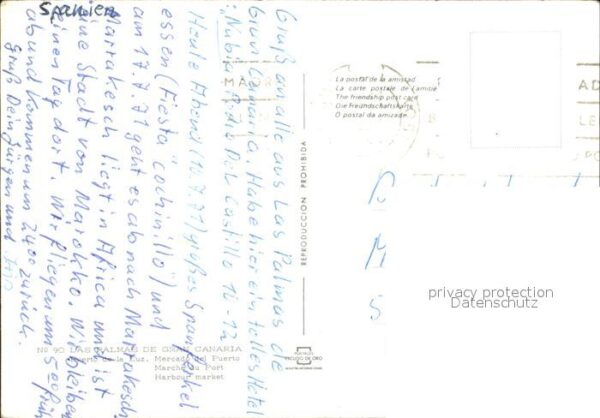 Spanien
Gruß an alle aus Las Palmas de
Gran Canaria. Habe hier ein tolles Hotel
"Nubia" Calle Dr. Castillo 10-12
Heute Abend (16.7.71) großes Spanferkel
essen (Fiesta "cochinillo") und
am 17.7.71 geht es ab nach Marrakesch
Marrakesch liegt in Africa und ist
eine Stadt von Marokko. Wir bleiben
einen Tag dort. Wir fliegen um 5ºº früh
ab und kommen um 24ºº zurück.
Gruß Dein Jürgen und
La postal de la amistad
La carte postale de l'amitié
The friendship post card
Die Freundschaftskarte
O postal da amizade
REPRODUCCION PROHIBIDA
AD
LE
privacy protection
Datenschutz
Nº 90. LAS PALMAS DE GRAN CANARIA
Puerto de la Luz. Mercado del Puerto
Marché du Port
Harbour market
POSTALES
ESCUDO DE ORO